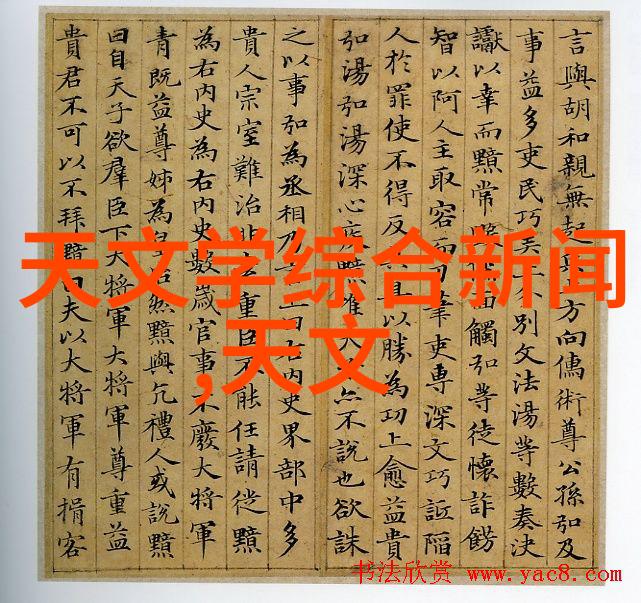 言與胡和親無起方向儒術尊公孫弘及
事益多吏民巧別文法湯等數奏決
讞以幸而黯常面觸弘等徒懷詐飾
智以阿人主取容而筆吏專深文巧詆陷
人於罪使不得反以勝為功上愈益貴
弘湯弘湯深心疾黯不說也欲誅
之以事弘為丞相乃上曰右內史界部中多
貴人宗室難治重臣不能任請徙黯
為右內史為右內史數歲官事不廢大將軍
青既益尊姊為皇后然黯與亢禮人或說黯
曰自天子欲羣臣下大將軍大將軍尊重益
貴君不可以不拜黯曰夫以大將軍有揖客
天文学综合新闻
,天文
书法欣赏 www.yac8.com